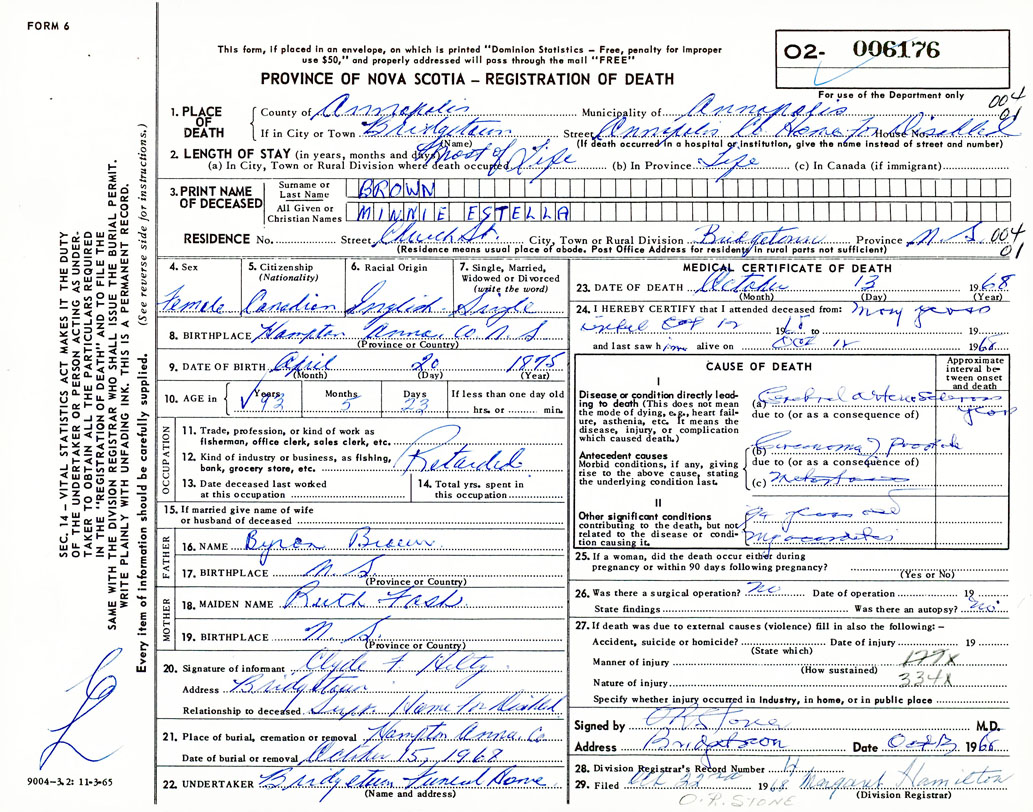 FORM 6
This form, if placed in an envelope, on which is printed "Dominion Statistics – Free, penalty for improper
use $50," and properly addressed will pass through the mail "FREE"
PROVINCE OF NOVA SCOTIA – REGISTRATION OF DEATH
O2- 006176
For use of the Department only
004
01
1. PLACE OF DEATH
County of Annapolis Municipality of Annapolis
If in City or Town Bridgetown Street Annapolis Co Home for Disabled House No.
(Name) (If death occurred in a hospital or institution, give the name instead of street and number)
2. LENGTH OF STAY (in years, months and days) Most of Life
(a) In City, Town or Rural Division where death occurred (b) In Province Life (c) In Canada (if immigrant)
3. PRINT NAME OF DECEASED
Surname or Last Name BROWN
All Given or Christian Names MINNIE ESTELLA
RESIDENCE No. Street Church St. City, Town or Rural Division Bridgetown Province N.S. 004
01
(Residence means usual place of abode. Post Office Address for residents in rural parts not sufficient)
4. Sex 5. Citizenship (Nationality) 6. Racial Origin 7. Single, Married, Widowed or Divorced (write the word)
Female Canadian English Single
8. BIRTHPLACE Hampton Anna. Co N.S
(Province or Country)
9. DATE OF BIRTH April 20 1875
(Month) (Day) (Year)
10. AGE in Years Months Days If less than one day old
93 5 23 hrs. or min.
OCCUPATION
11. Trade, profession, or kind of work as
fisherman, office clerk, sales clerk, etc.
12. Kind of industry or business, as fishing,
bank, grocery store, etc.
Retarded
13. Date deceased last worked
at this occupation
14. Total yrs. spent in
this occupation
15. If married give name of wife
or husband of deceased
FATHER
16. NAME Byron Brown
17. BIRTHPLACE N.S.
(Province or Country)
MOTHER
18. MAIDEN NAME Ruth Fash
19. BIRTHPLACE N.S.
(Province or Country)
20. Signature of informant Clyde F Hiltz
Address Bridgetown
Relationship to deceased Supt. Home for Disabled
21. Place of burial, cremation or removal Hampton Anna. Co
Date of burial or removal October 15, 1968
22. UNDERTAKER Bridgetown Funeral Home
(Name and address)
MEDICAL CERTIFICATE OF DEATH
23. DATE OF DEATH October 13 1968
(Month) (Day) (Year)
24. I HEREBY CERTIFY that I attended deceased from: many years
until Oct 12 to 19
and last saw him alive on Oct 12 1968
CAUSE OF DEATH
Approximate interval between onset and death
I
Disease or condition directly leading to death (This does not mean
the mode of dying, e.g., heart failure, asthenia, etc. It means the
disease, injury, or complication
which caused death.)
(a) Cerebral arteriosclerosis years
due to (or as a consequence of)
Antecedent causes
Morbid conditions, if any, giving
rise to the above cause, stating
the underlying condition last.
(b)
due to (or as a consequence of)
(c) Metastases
II
Other significant conditions
contributing to the death, but not
related to the disease or condition causing it.
Myocarditis
25. If a woman, did the death occur either during
pregnancy or within 90 days following pregnancy?
(Yes or No)
26. Was there a surgical operation? no Date of operation 19
State findings Was there an autopsy? no
27. If death was due to external causes (violence) fill in also the following: –
Accident, suicide or homicide? Date of injury 19
(State which)
Manner of injury 177X
(How sustained)
Nature of injury 334X
Specify whether injury occurred in industry, in home, or in public place
Signed by O R Stone M.D.
Address Bridgetown Date Oct 13, 1968
28. Division Registrar's Record Number
29. Filed Oct 22nd 1968 Margaret Hamilton
(Division Registrar)
O.R. STONE
SEC. 14 – VITAL STATISTICS ACT MAKES IT THE DUTY
OF THE UNDERTAKER OR PERSON ACTING AS UNDERTAKER TO OBTAIN ALL THE PARTICULARS REQUIRED
IN THE "REGISTRATION OF DEATH" AND TO FILE THE
SAME WITH THE DIVISION REGISTRAR WHO SHALL ISSUE THE BURIAL PERMIT.
WRITE PLAINLY WITH UNFADING INK. THIS IS A PERMANENT RECORD.
Every item of information should be carefully supplied. (See reverse side for instructions.)
9004-3.2: 11-3-65